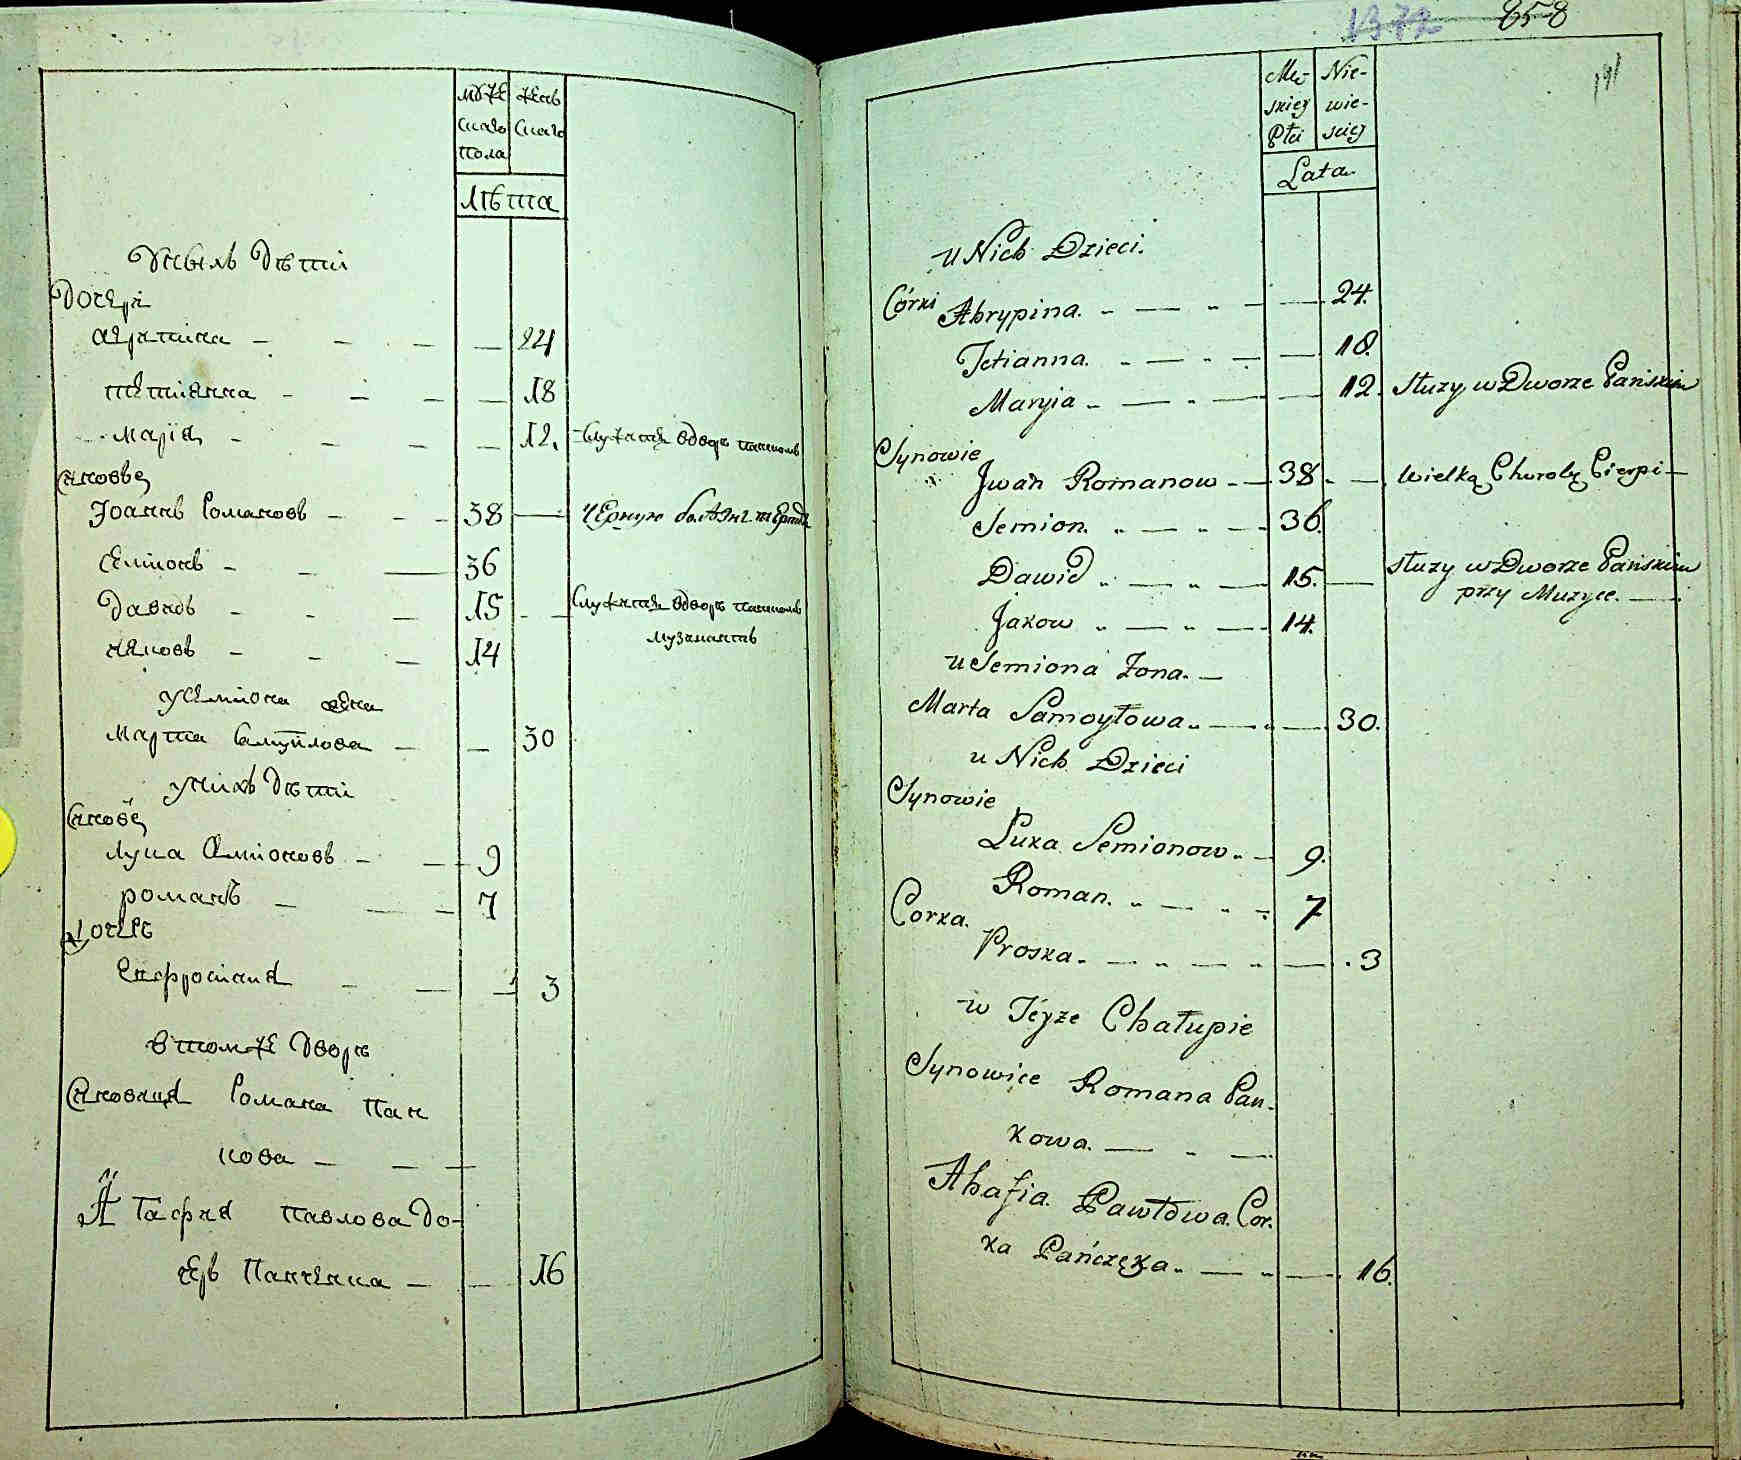 муже женъ
скаго скаго
пола
лѣта
Унихъ дѣти
дочери
агрипина - - - - 24
тетіянна - - - - 18
марія - - - - 12. служитъ вдворѣ панскомъ
сыновье
Іоаннъ Романовъ - - - 38 - черную болѣзнь терпитъ
семіонъ - - - 36
давидъ - - - 15 - - служитъ вдворѣ панскомъ
музыкантъ
яковъ - - - 14
усеміона жена
марта самуйлова - - 30
унихъ дѣти
сыновѣ
лука семіоновъ - - 9
романъ - - - 7
дочерь
ефросинія - - - 3
втомже дворѣ
сыновица Романа Пан
кова - - -
Агафия павлова до-
черь Панченка - - 16
1372 858
191
Mę- Nie-
skiey wie-
Płci sciey
Lata
u Nich Dzieci.
Córki Ahrypina. - — „ - — 24.
Tetianna. - — „ — — 18.
Maryia - — „ — — 12. służy w Dworze Pańskim
Synowie
Jwan Romanow - — 38 - — wielką Chorobę Cierpi —
Semion. „ — „ — 36.
Dawid „ — „ — 15. — służy w Dworze Pańskim
przy Muzyce. —
Jakow „ — „ — 14.
u Semiona Zona. —
Marta Samoyłowa.. — „ — 30.
u Nich Dzieci
Synowie
Łuka Semionow.. — 9.
Roman. „ — „ - 7
Corka.
Proska. - — „ — „ — . 3
w Teyze Chałupie
Synowice Romana Pan-
kowa. — „ —
Ahafia Pawłowa. Cor.
ka Pańczęka.. — „ — . 16.